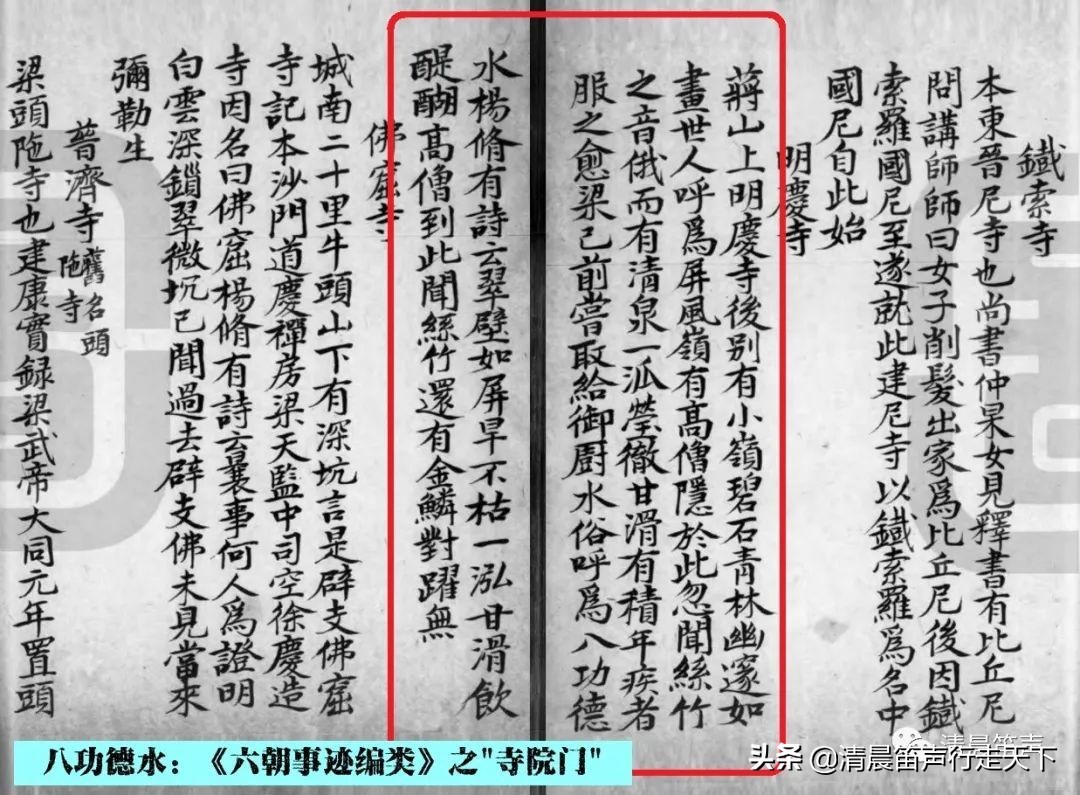 鐵索寺
本東晉尼寺也尚書仲杲女見釋書有比丘尼
問講師師曰女子削髮出家爲比丘尼後因鐵
索羅國尼至遂就此建尼寺以鐵索羅爲名中
國尼自此始
明慶寺
蔣山上明慶寺後別有小嶺碧石青林幽邃如
畫世人呼爲屏風嶺有高僧隱於此忽聞絲竹
之音俄而有清泉一泒瑩徹甘滑有積年疾者
服之愈梁已前嘗取給御廚水俗呼爲八功德
水楊脩有詩云翠壁如屏旱不枯一泓甘滑飲
醍醐高僧到此聞絲竹還有金鱗對躍無
佛窟寺
城南二十里牛頭山下有深坑言是辟支佛窟
寺記本沙門道慶禪房梁天監中司空徐慶造
寺因名曰佛窟楊脩有詩云曩事何人爲證明
白雲深鎖翠微坑已聞過去辟支佛未見當來
彌勒生
普濟寺 舊名頭陁寺
梁頭陁寺也建康實録梁武帝大同元年置頭
八功德水：《六朝事迹编类》之"寺院门"
头条 @清晨笛声行走天下
清晨笛声